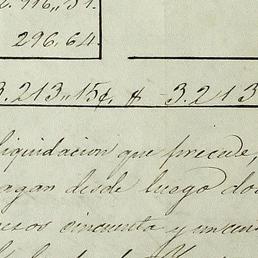 2.916,,51.
296.64.
3.213,,15¢. # 3.213
liquidacion que precede,
agan desde luego dos
esos cincuenta y un cen